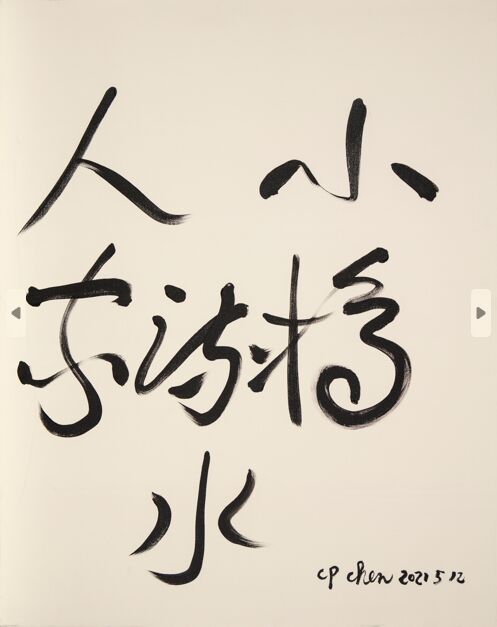 小橋
流水
人家
CP Chen 2021 5 12